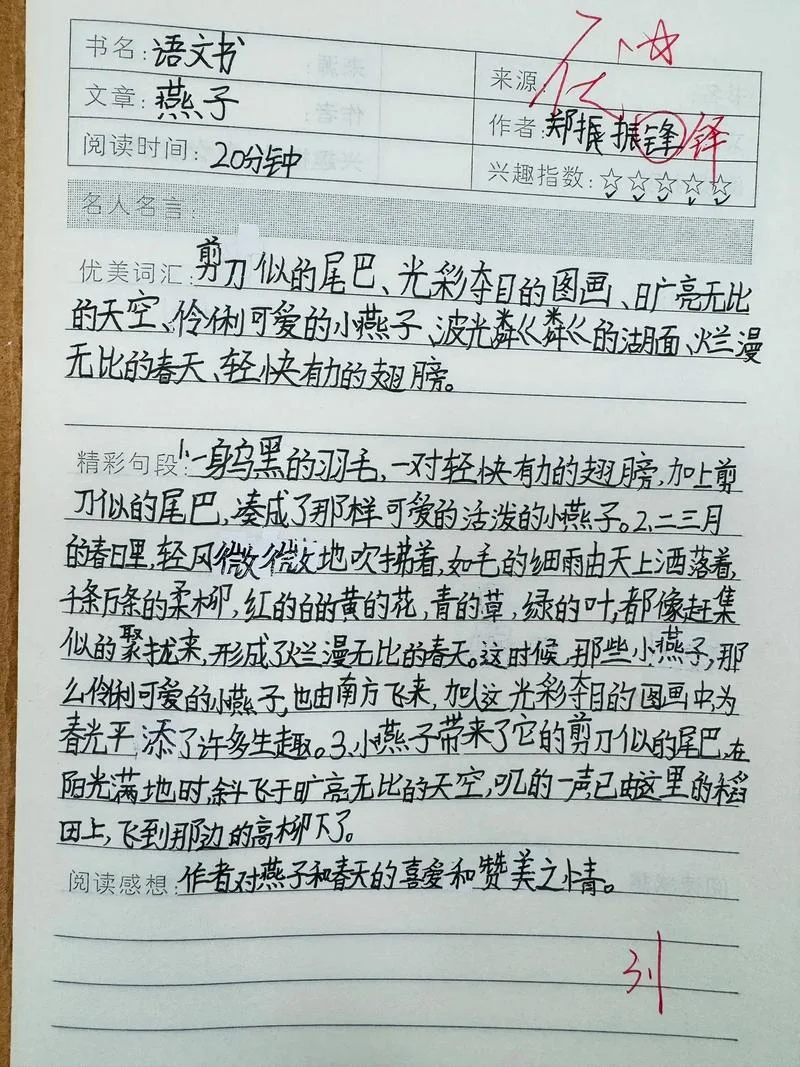 书名:语文书
来源:
文章:燕子
作者:郑振振锋 铎
阅读时间:20分钟
兴趣指数:☆☆☆☆☆
名人名言:
优美词汇:剪刀似的尾巴、光彩夺目的图画、旷亮无比
的天空、伶俐可爱的小燕子、波光粼粼的湖面、烂漫
无比的春天、轻快有力的翅膀。
精彩句段:1、一身乌黑的羽毛,一对轻快有力的翅膀,加上剪
刀似的尾巴,凑成了那样可爱的活泼的小燕子。2、二三月
的春日里,轻风微微地吹拂着,如毛的细雨由天上洒落着,
千条万条的柔柳,红的白的黄的花,青的草,绿的叶,都像赶集
似的聚拢来,形成了烂漫无比的春天。这时候,那些小燕子,那
么伶俐可爱的小燕子,也由南方飞来,加入这光彩夺目的图画中,为
春光平添了许多生趣。3、小燕子带来了它的剪刀似的尾巴,在
阳光满地时,斜飞于旷亮无比的天空,叽的一声,已由这里的稻
田上,飞到那边的高柳下了。
阅读感想:作者对燕子和春天的喜爱和赞美之情。